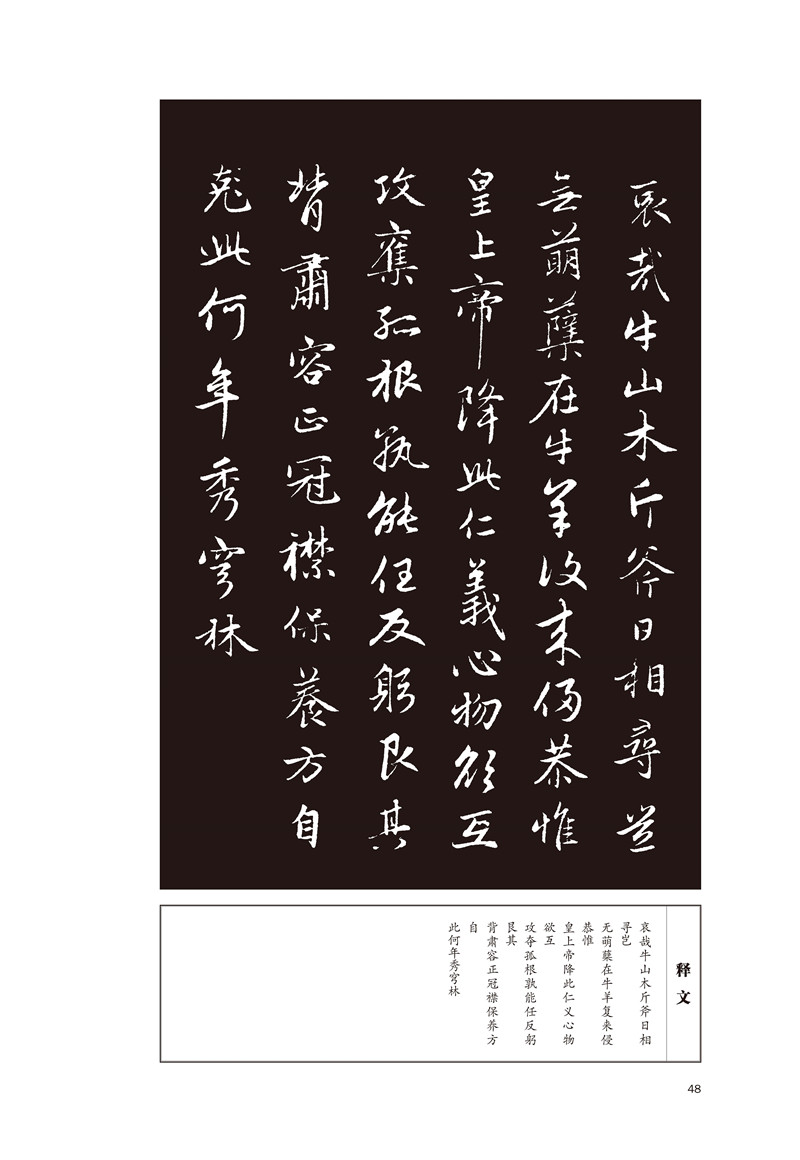 哀哉牛山木斤斧日相尋豈
無萌蘖在牛羊復来侵恭惟
皇上帝降此仁義心物欲互
攻奪孤根孰能任反躬艮其
背肅容正冠襟保養方自
此何年秀穹林
释文
哀哉牛山木斤斧日相
寻岂
无萌蘖在牛羊复来侵
恭惟
皇上帝降此仁义心物
欲互
攻夺孤根孰能任反躬
艮其
背肃容正冠襟保养方
自
此何年秀穹林
48